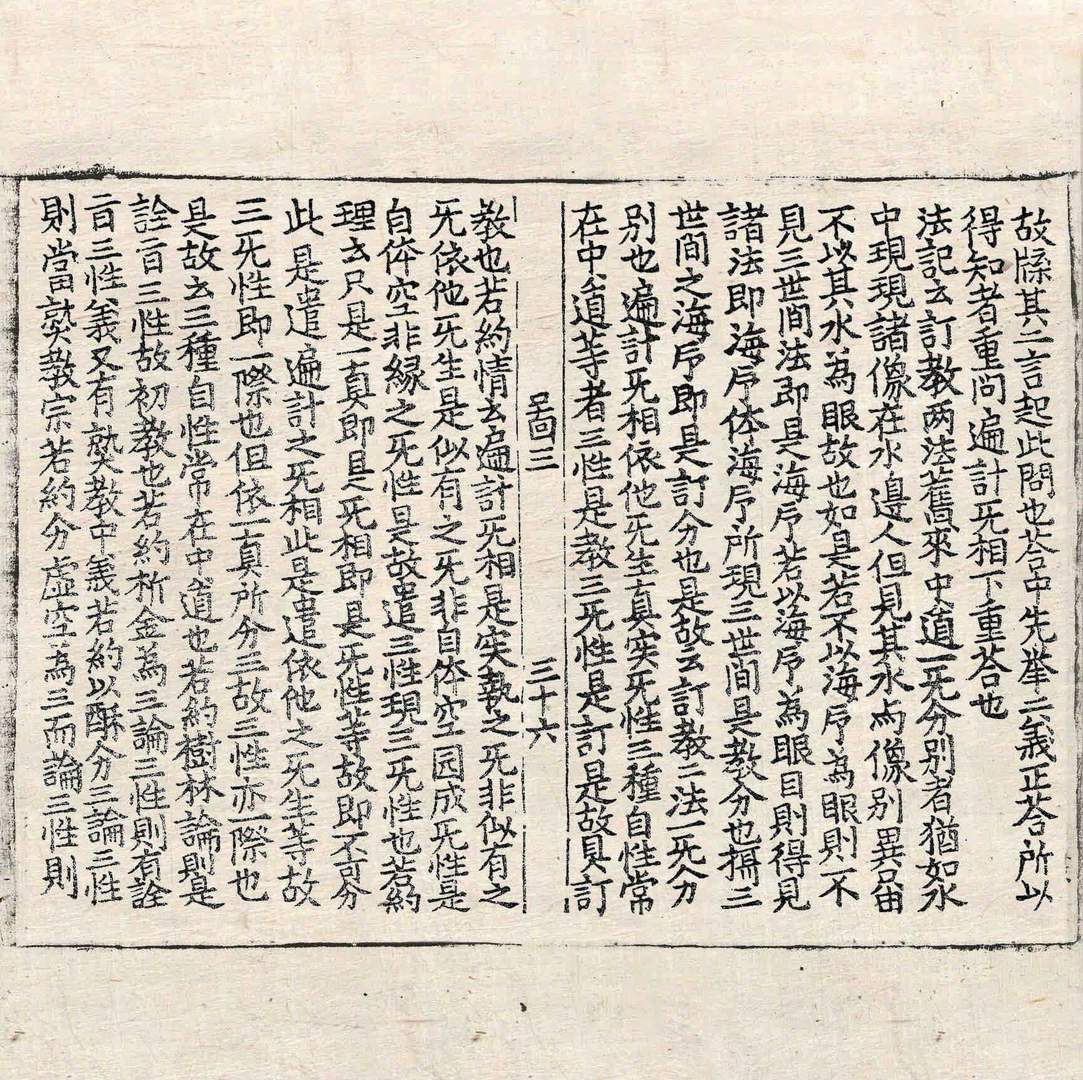 故牒其一言起此問也荅中先挙二義正荅所以
得知者重問遍計旡相下重荅也
法記云訂教两法舊來中道一旡分別者猶如水
中現現諸像在水邊人但見其水与像別異
不以其水為眼故也如是若不以海印為眼則不
見三世間法即是海印若以海印為眼目則得見
諸法即海印体海印所現三世間是教分也揖三
世間之海印即是訂分也是故云訂教二法一旡分
別也遍計旡相依他旡生真实旡性三種自性常
在中道等者三性是教三旡性是訂是故具訂
三 三十六
教也若約情云遍計旡相是实執之旡非似有之
旡依他旡生是似有之旡非自体空园成旡性是
自体空非縁之旡性是故遣三性現三旡性也若約
理云只是一真即是旡相即是旡性等故即不可分
此是遣遍計之旡相此是遣依他之旡生等故
三旡性即一際也但依一真所分三故三性亦一際也
是故云三種自性常在中道也若約樹林論則是
詮言三性故初教也若約析金為三論三性則有詮
言三性義又有熟教中義若約以酥分三論三性
則當熟教宗若約分虛空為三而論三性則